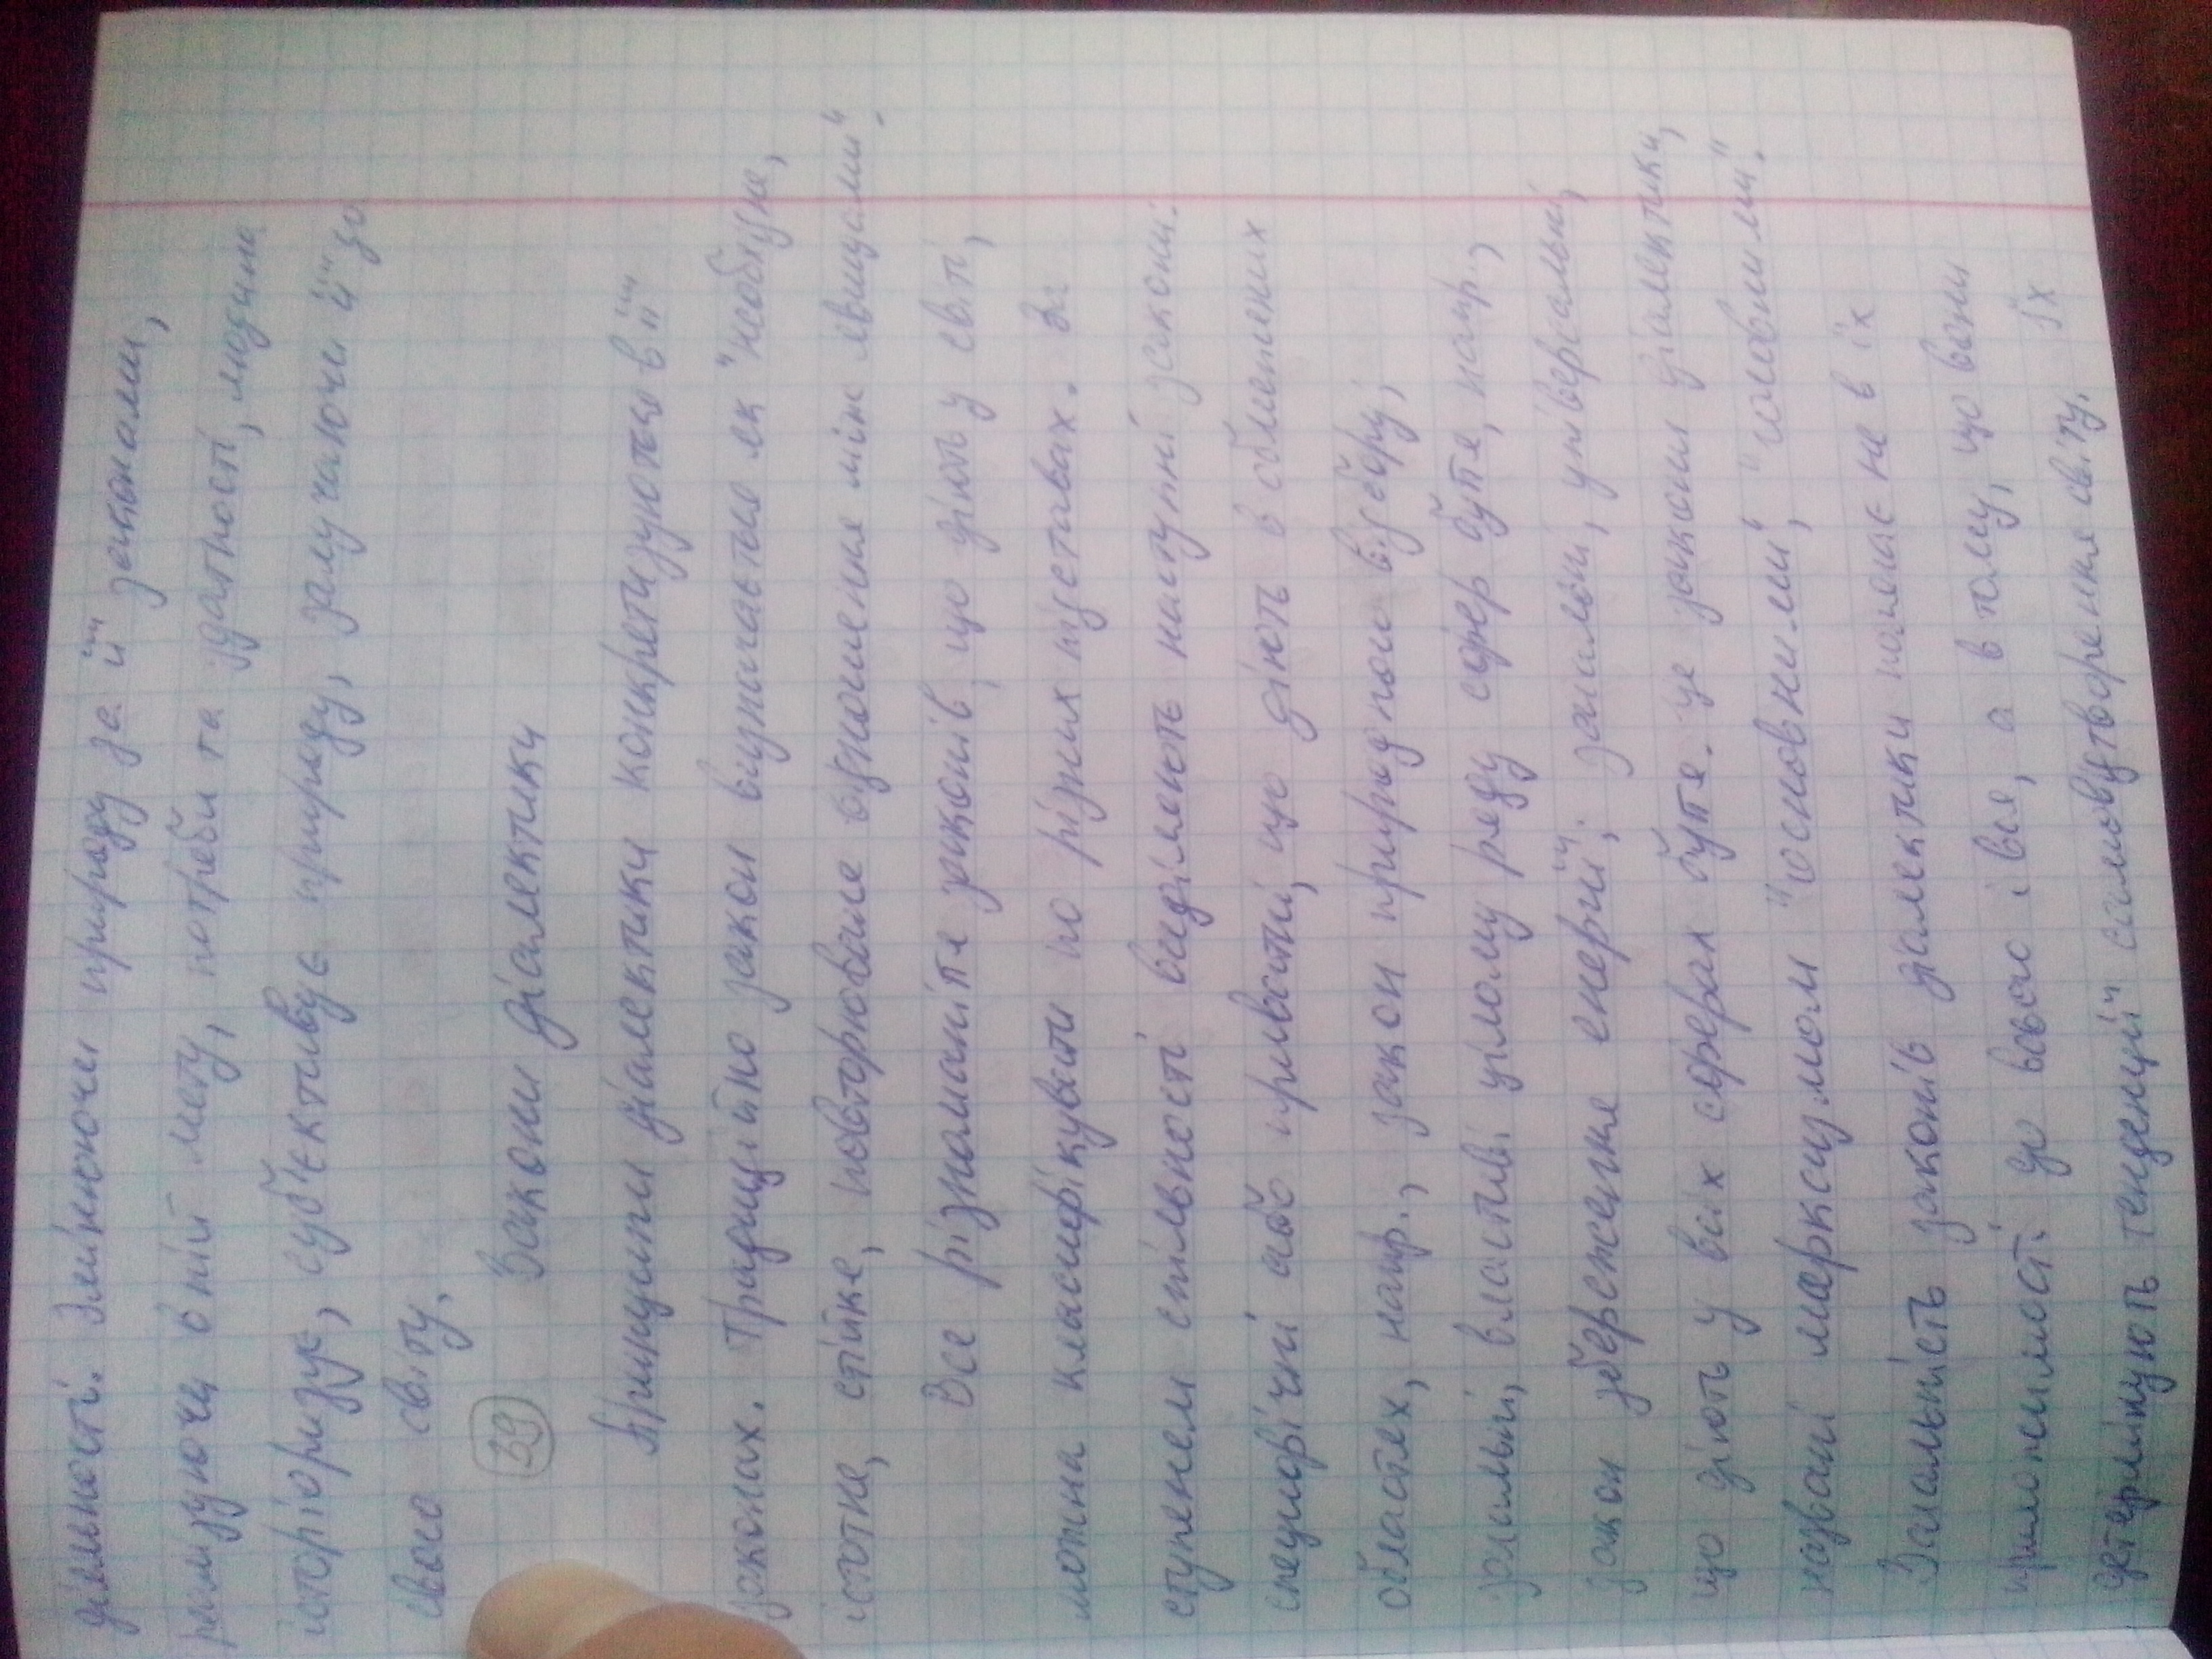 діяльності. Змінюючи природу за її законами,
реалізуючи в ній мету, потреби та здатності, людина
історіоризує, суб'єктивує природу, залучаючи її до
свого світу.
39 Закони діалектики
Принципи діалектики конкретизуються в її
законах. Традиційно закон визначається як "необхідне,
істотне, стійке, повторювальне відношення між явищами".
Все різноманіття законів, що діють у світі,
можна класифікувати по різних підставах. За
ступенем спільності виділяють наступні закони:
специфічні або приватні, що діють в обмежених
областях, напр., закон природного відбору;
загальні, властиві цілому ряду сфер буття, напр.,
закон збереження енергії; загальні, універсальні,
що діють у всіх сферах буття. Це закони діалектики,
названі марксизмом "основними", "головними".
Загальність законів діалектики полягає не в їх
приложимості до всього і вся, а в тому, що вони
детермінують тенденції самовідтворення світу. Їх